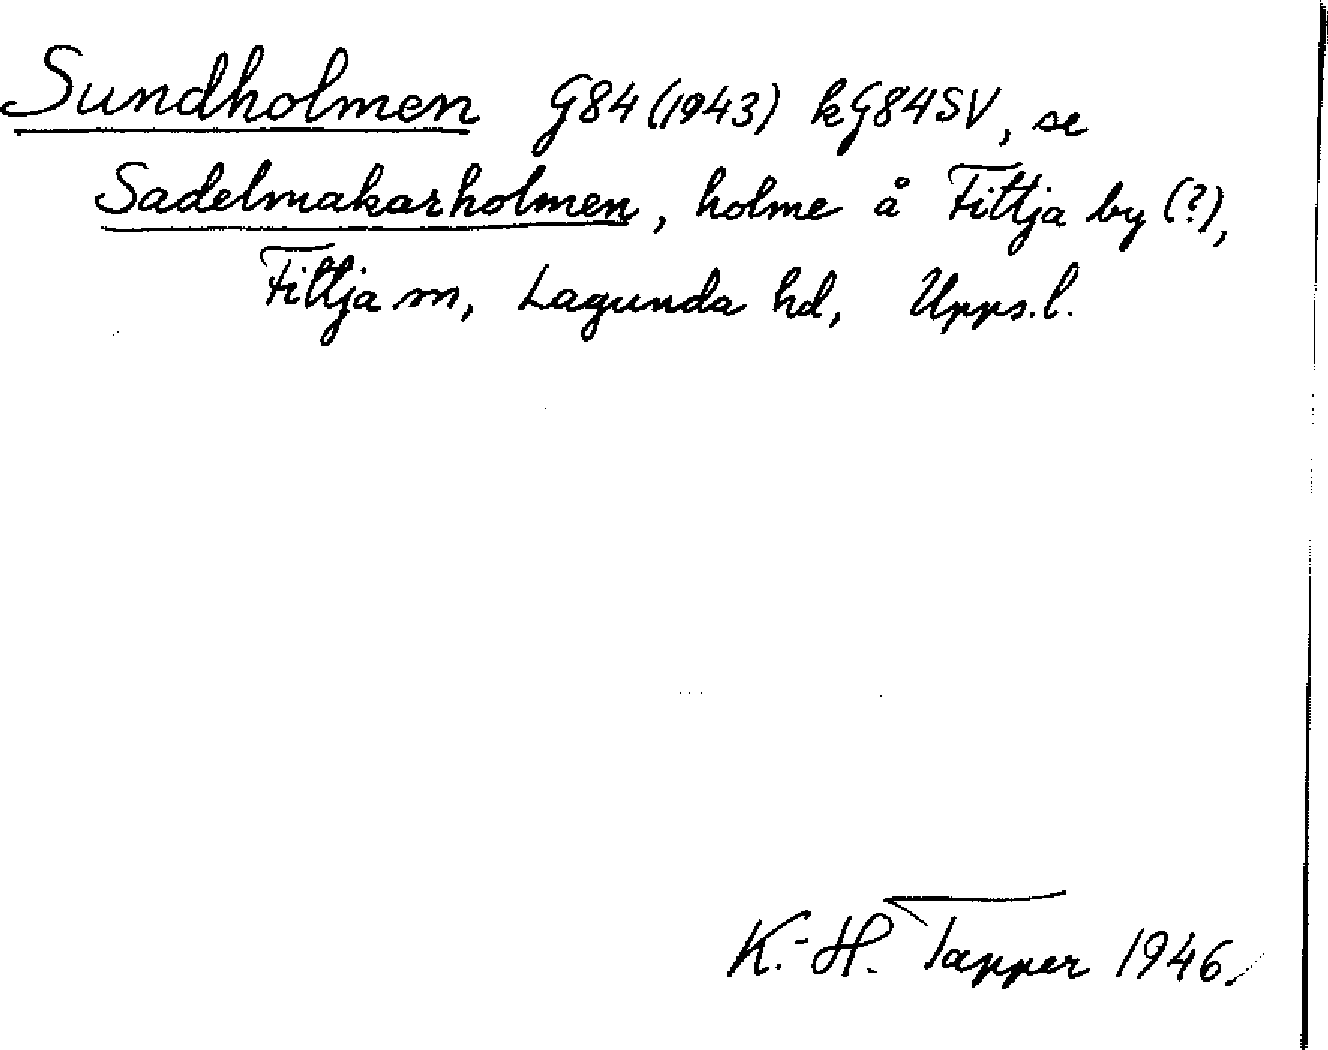 Sundholmen G84 (1943) kG84SV, se
Sadelmakarholmen, holme å Fittja by (?),
Fittja sn, Lagunda hd, Upps. l.
K.-H. Tapper 1946.